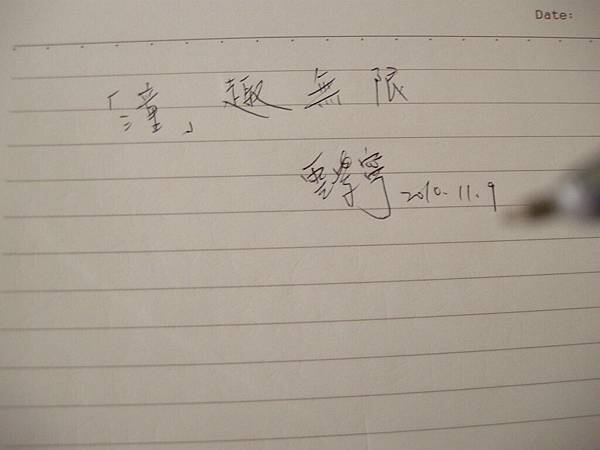 Date:
「潼」趣無限
2010.11.9